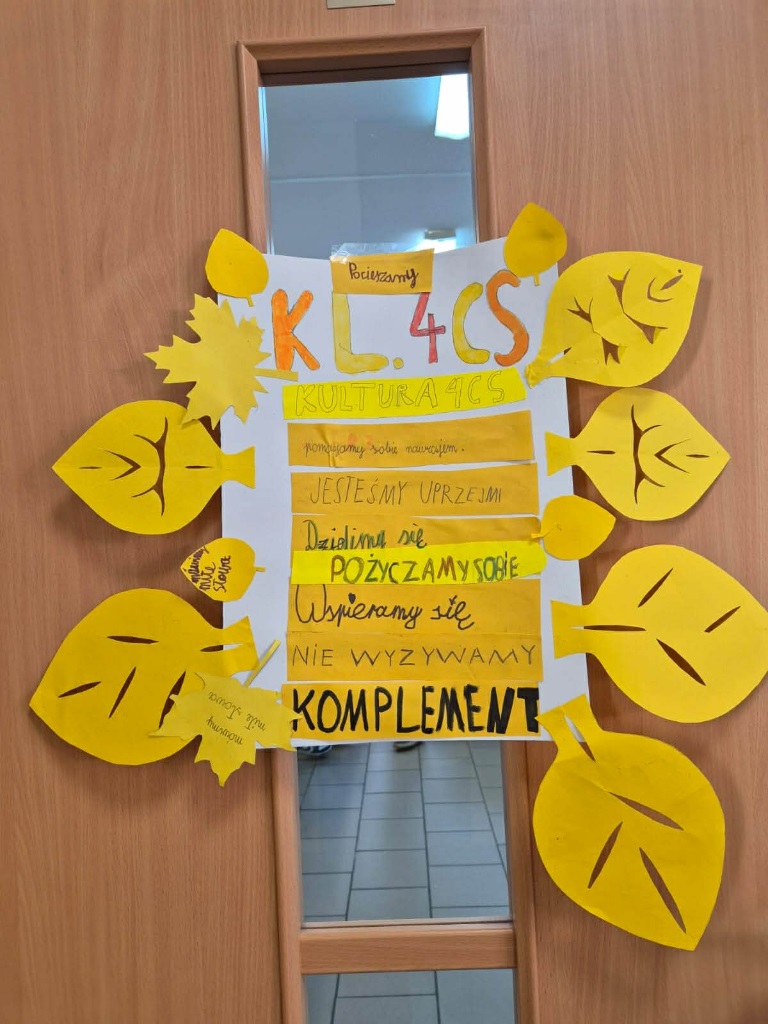 Pocieszamy
KL. 4CS
KULTURA 4CS
pomagamy sobie nawzajem.
JESTEŚMY UPRZEJMI
Dzielimy się
POŻYCZAMY SOBIE
mówimy
miłe
słowa
Wspieramy się
NIE WYZYWAMY
mówimy
miłe słowa
KOMPLEMENT